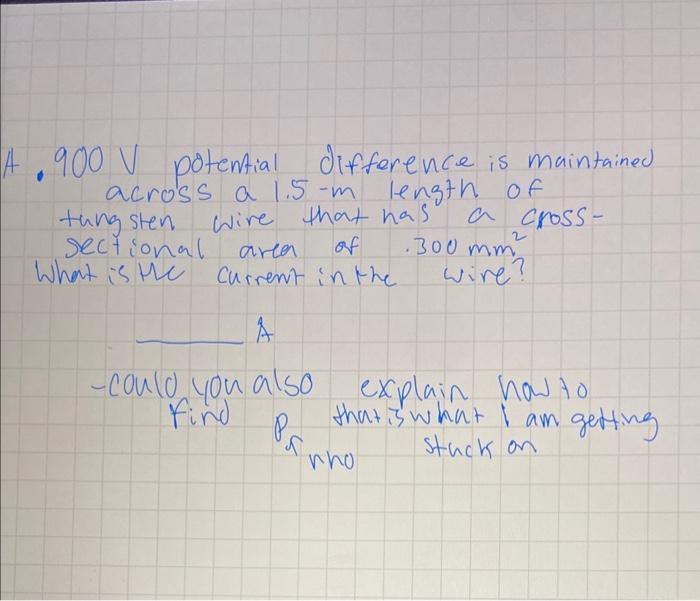 A .900 V potential difference is maintained
across a 1.5-m length of
tungsten wire that has a cross-
sectional area of .300 mm²
What is the current in the wire?
______ A
-could you also explain how to
find ρ that is what I am getting
rho stuck on